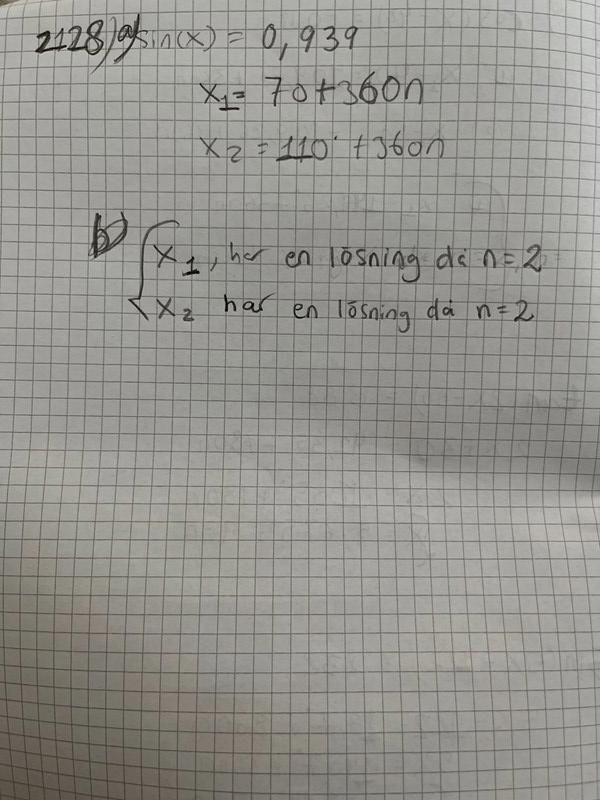 2128) a) sin(x) = 0,939
x1 = 70+360n
x2 = 110° +360n
b) { x1, har en lösning då n=2
x2 har en lösning då n=2